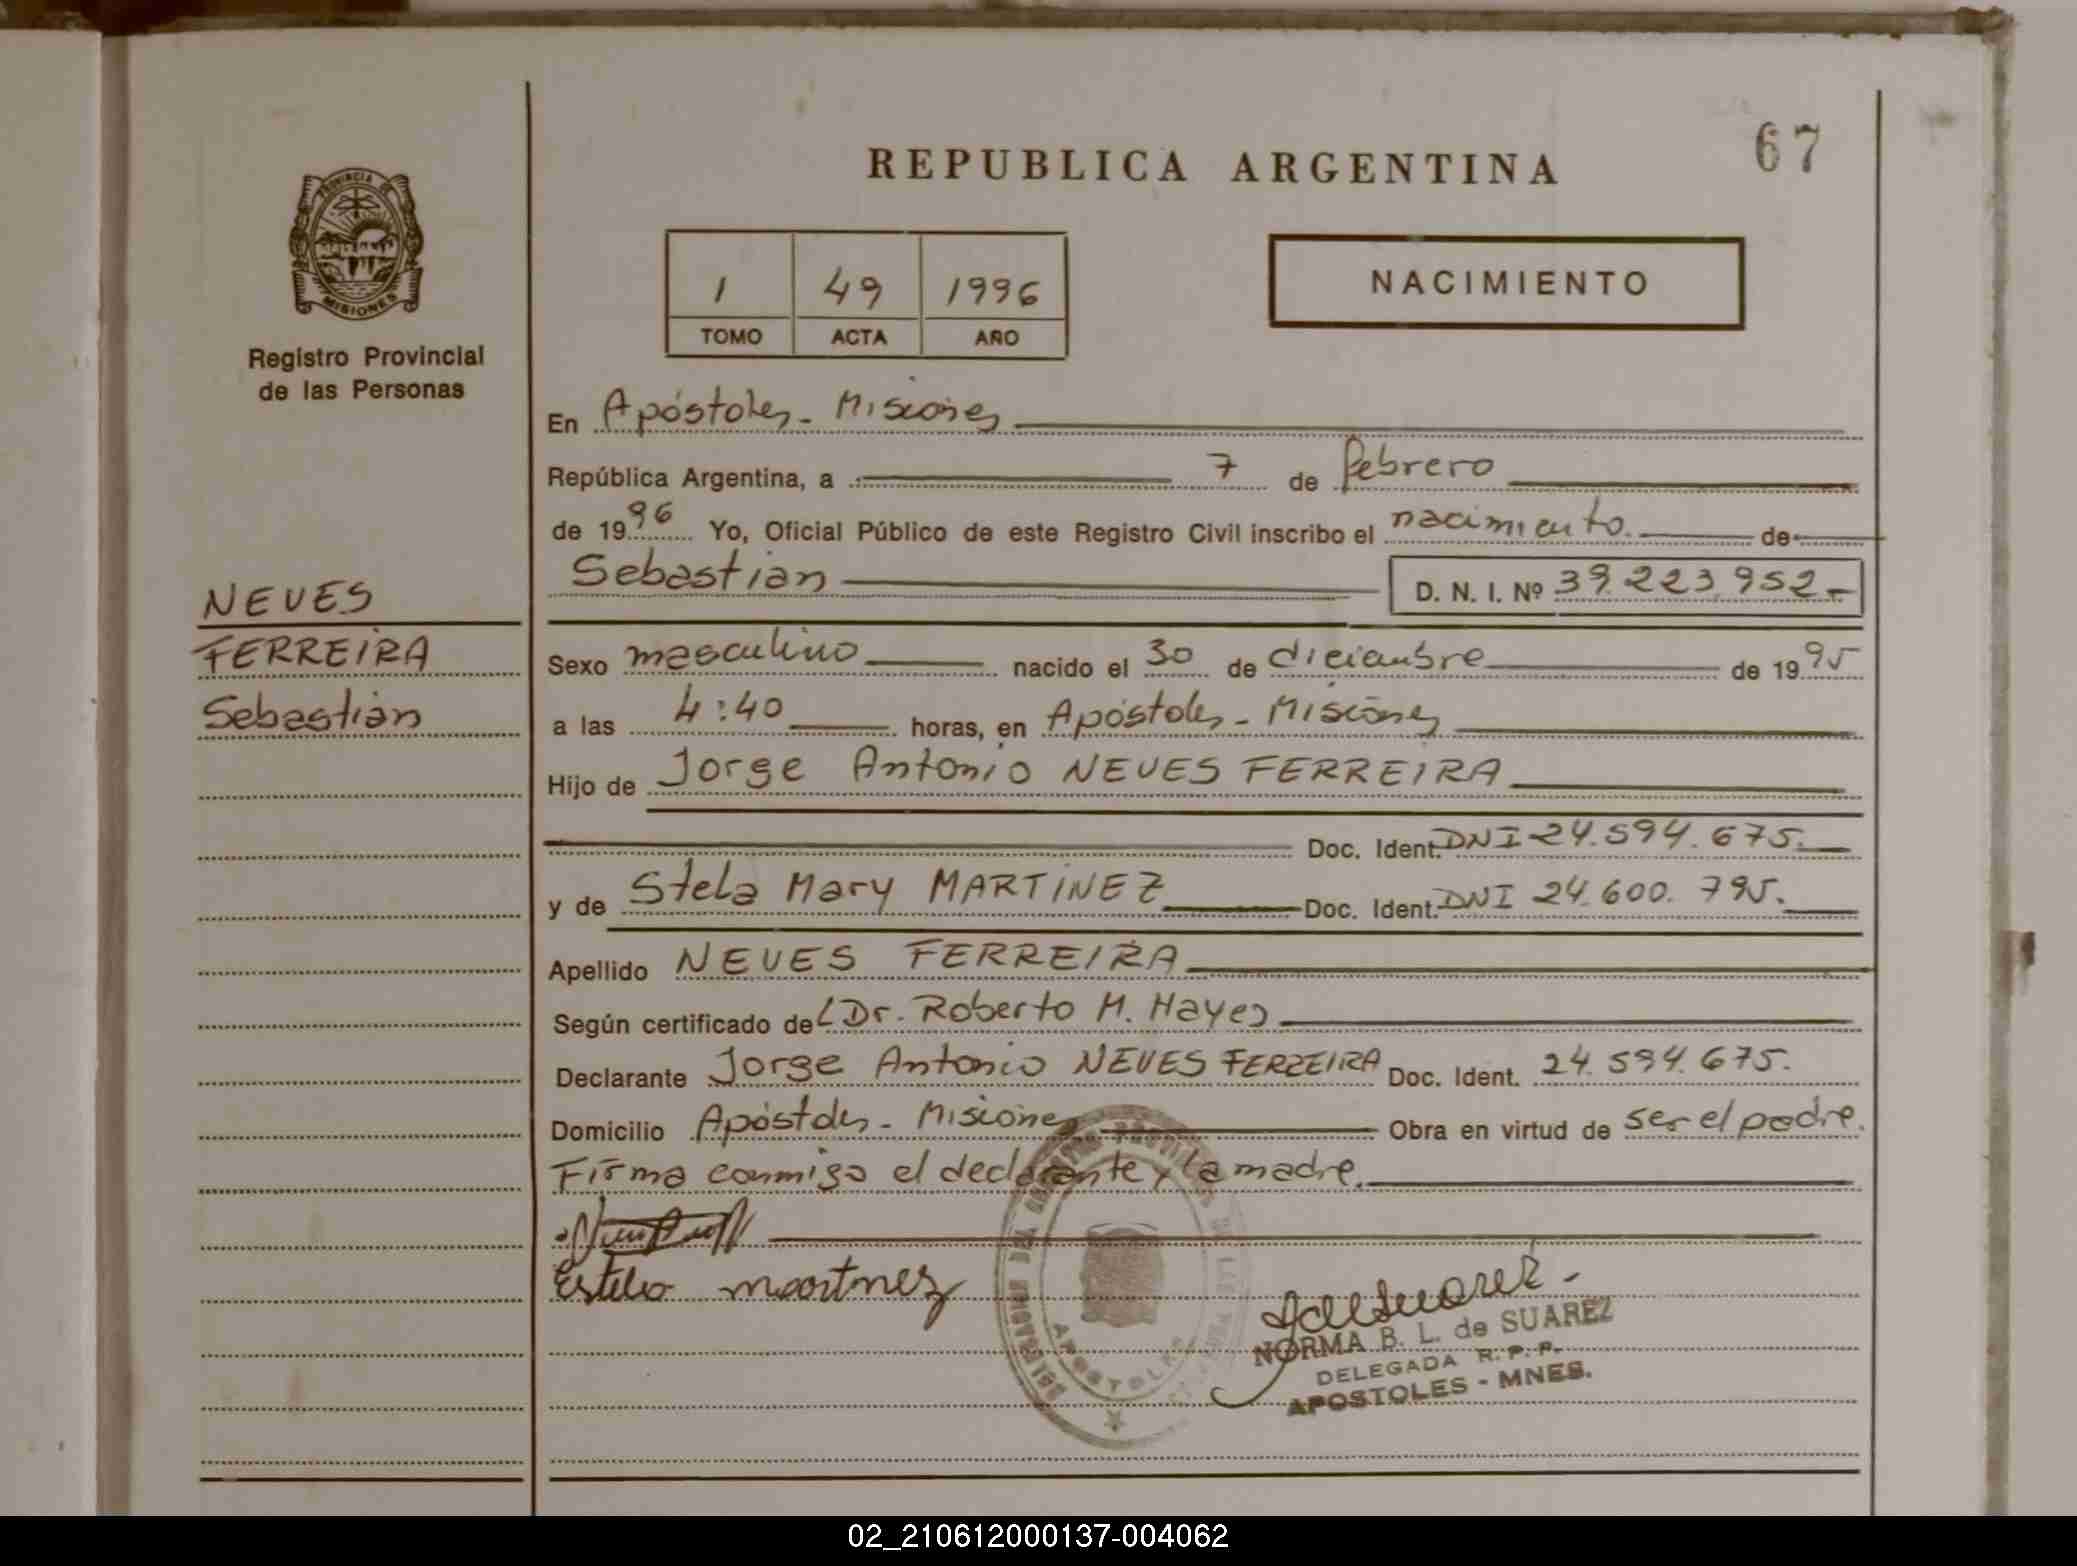 67
REPUBLICA ARGENTINA
PROVINCIA DE
MISIONES
Registro Provincial
de las Personas
1 49 1996
TOMO ACTA AÑO
NACIMIENTO
En Apóstoles - Misiones
República Argentina, a 7 de febrero
de 1996 Yo, Oficial Público de este Registro Civil inscribo el nacimiento. de
Sebastián D. N. I. Nº 39.223.952-
NEVES
FERREIRA
Sebastián
Sexo masculino nacido el 30 de diciembre de 1995
a las 4:40 horas, en Apóstoles - Misiones
Hijo de Jorge Antonio NEVES FERREIRA
Doc. Ident. DNI 24.594.675.
y de Stela Mary MARTINEZ Doc. Ident. DNI 24.600.795.
Apellido NEVES FERREIRA
Según certificado del Dr. Roberto M. Hayes
Declarante Jorge Antonio NEVES FERREIRA Doc. Ident. 24.594.675.
Domicilio Apóstoles - Misiones Obra en virtud de ser el padre.
Firma conmigo el declarante y la madre.
Estela martinez
APOSTOLES
NORMA B. L. de SUAREZ
DELEGADA R. P. P.
APOSTOLES - MNES.
02_210612000137-004062